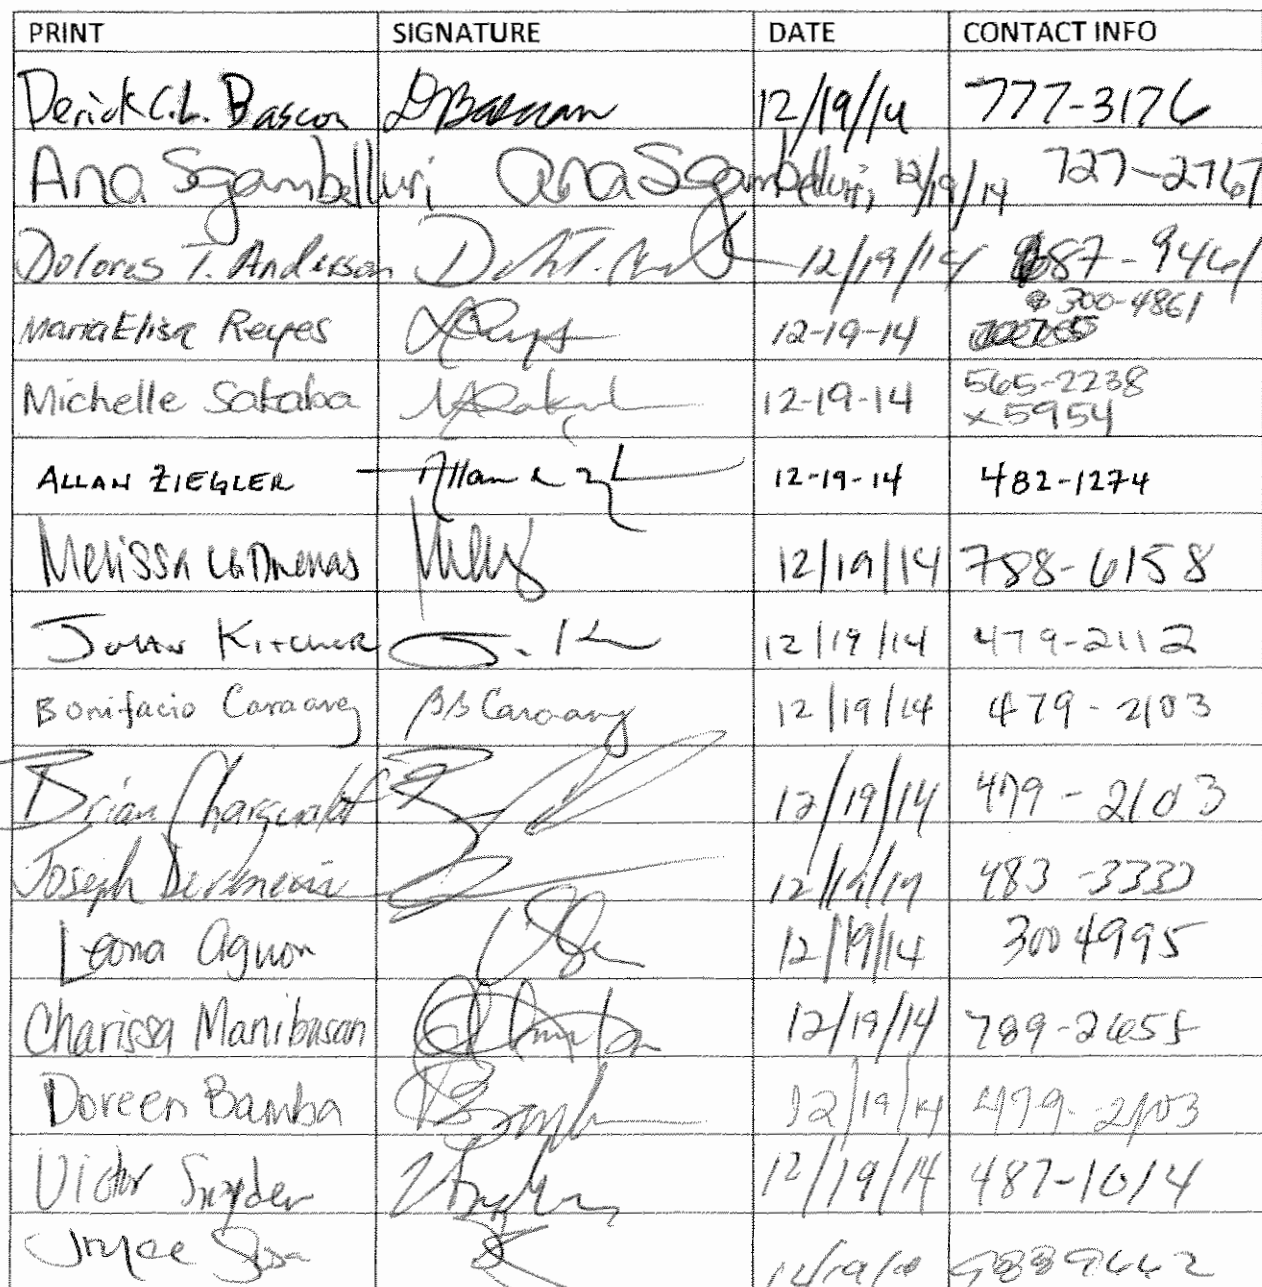 PRINT SIGNATURE DATE CONTACT INFO
Derick C.L. Bascon DBascon 12/19/14 777-3176
Ana Sgambelluri Ana Sgambelluri, 12/19/14 727-2767
Dolores T. Anderson 12/19/14 687-9461
300-4861
Maria Elisa Reyes 12-19-14
565-2238
Michelle Sakaba 12-19-14
x5954
ALLAN ZIEGLER Allan 12-19-14 482-1274
Melissa 12/19/14 788-6158
Kitchner 12/19/14 479-2112
Bonifacio Caraang BB Caraang 12/19/14 479-2103
Brian Chargualaf 12/19/14 479-2103
Joseph 12/19/14 483-3333
Leona Aguon 12/19/14 300 4995
Charissa Manibusan 12/19/14 789-2655
Doreen Bamba 12/19/14 479-2103
Victor Snyder 12/19/14 487-1014
Joyce